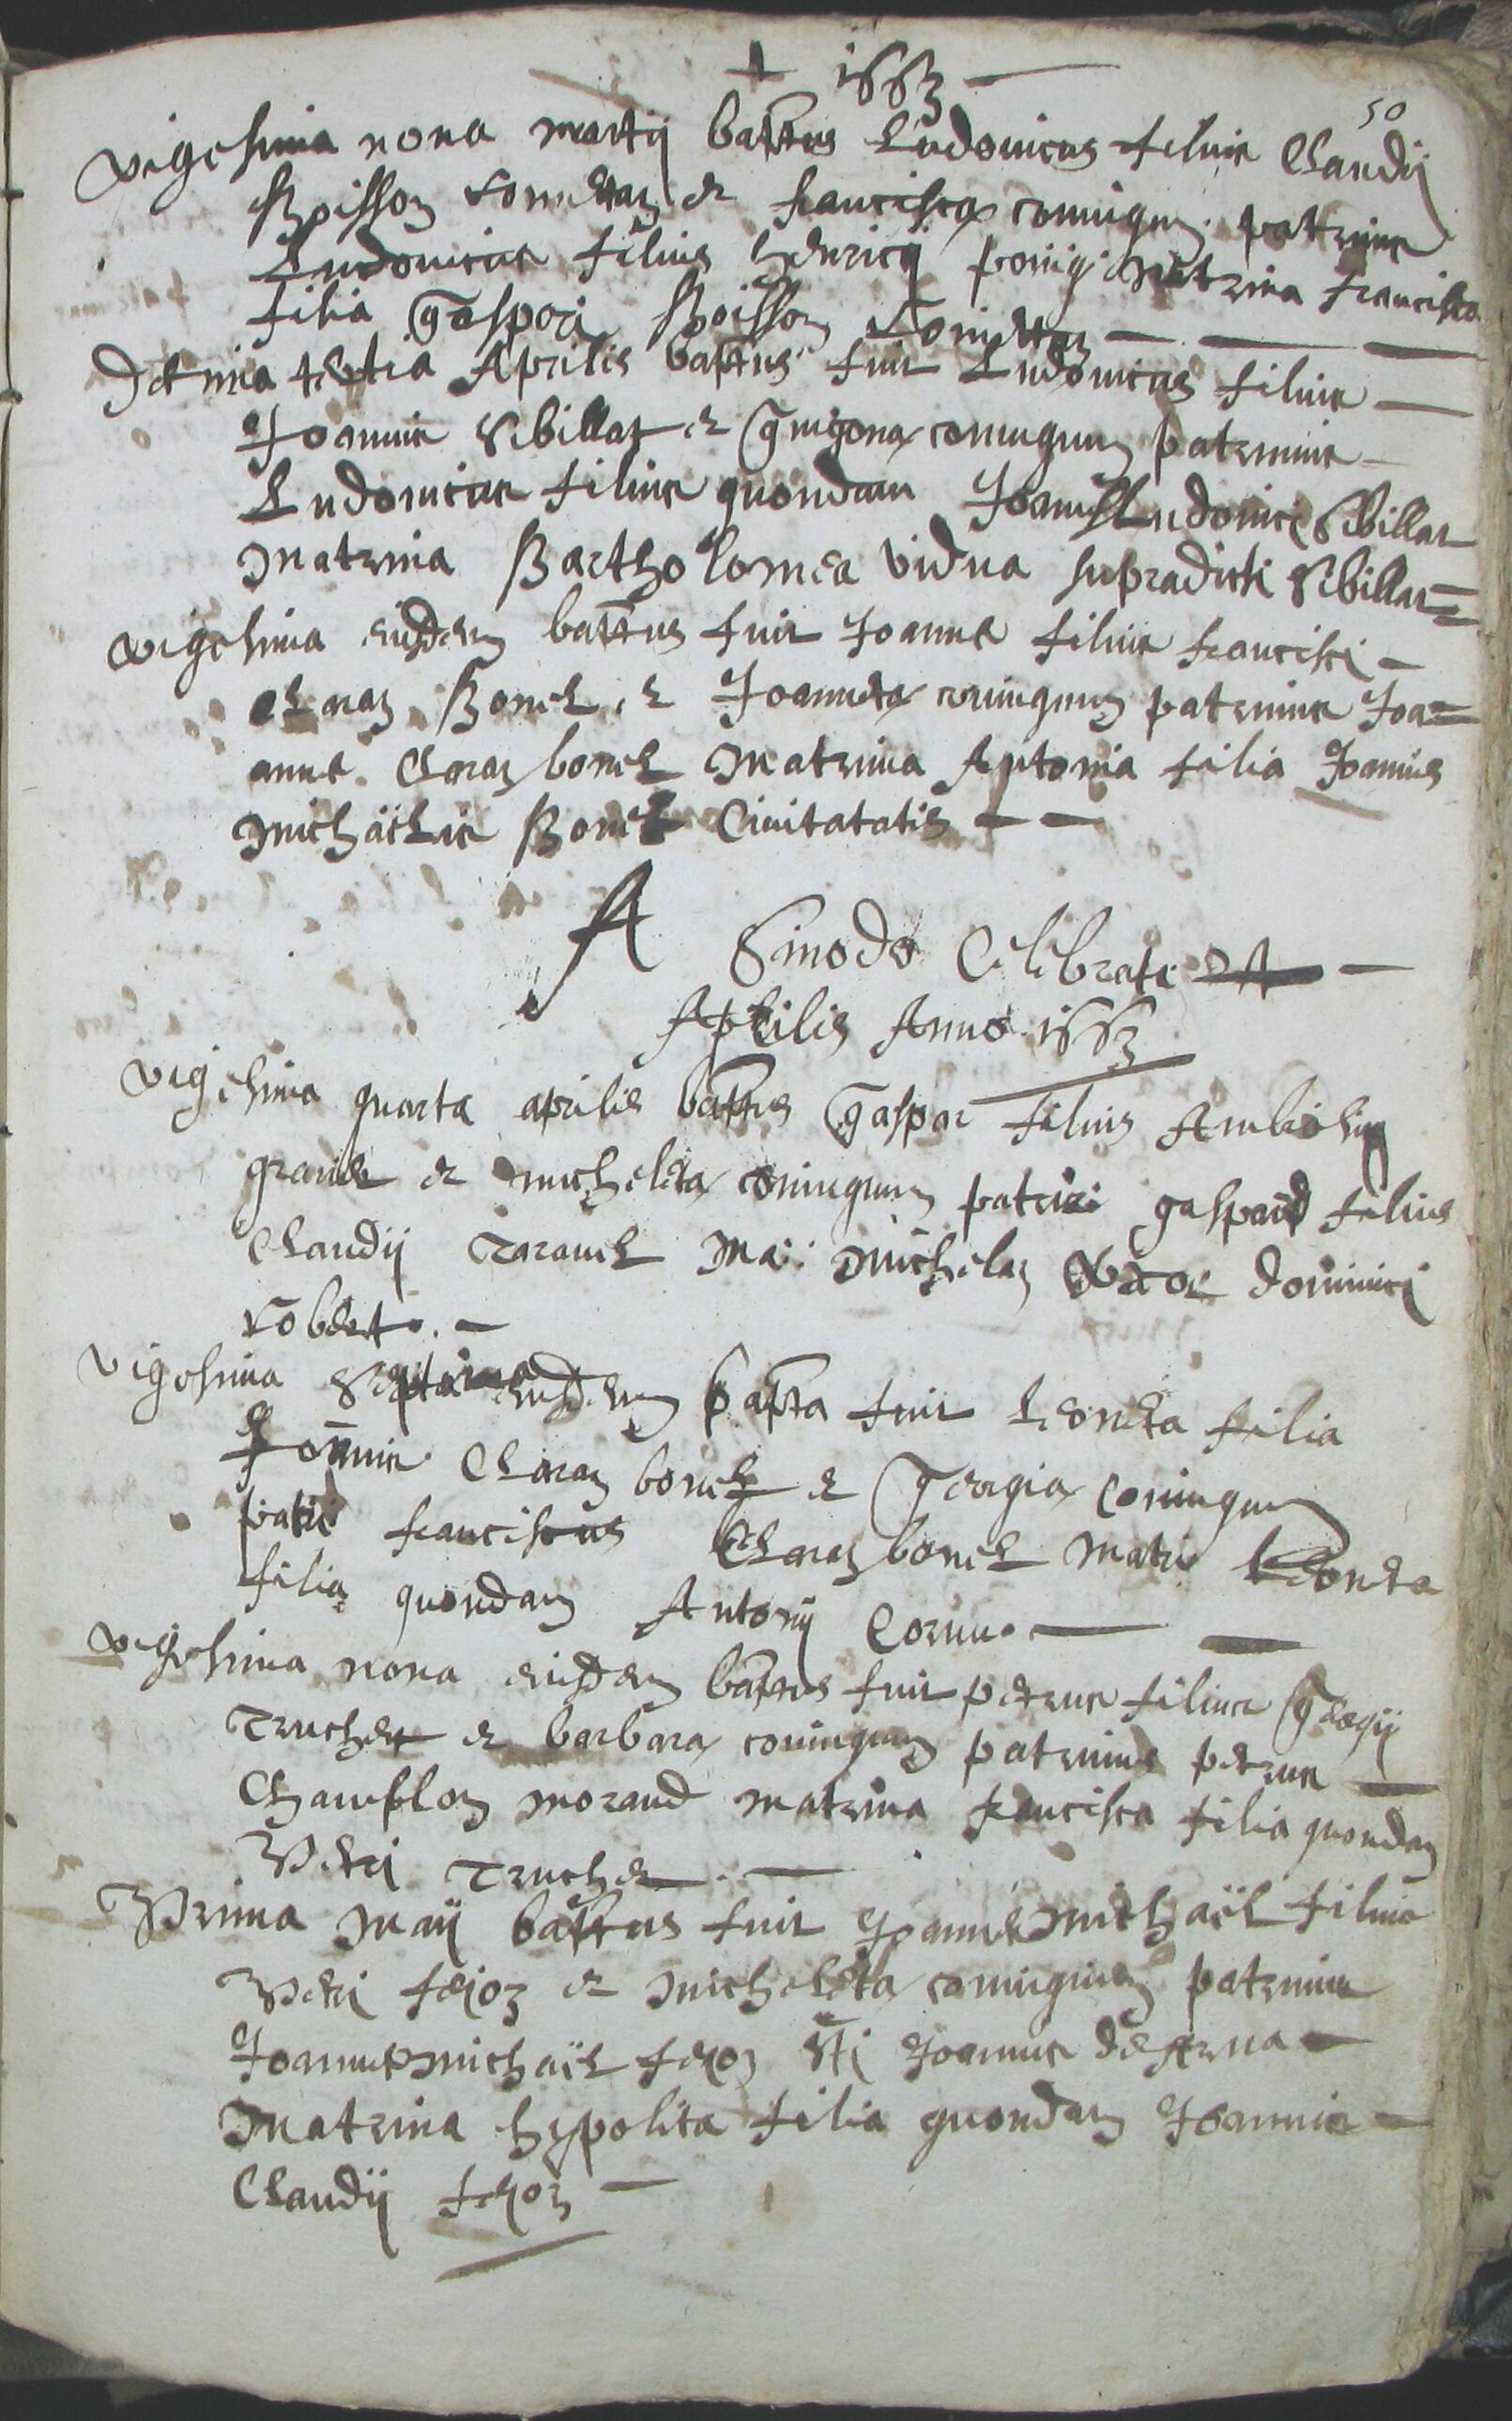 + 1553
50
Vigesima nona martij baptus Ludovicus filius Claudij
Boisson et francisca coniugum patrinus
Ludovicus filius henrici matrina francisca
filia Gaspari Boisson
Decima tertia Aprilis baptus fuit Ludovicus filius
Joannis Sibillat et Guigona coniugum patrinus
Ludovicus filius quondam Joannis Ludovici Sibillat
Matrina Bartholomea vidua supradicti Sibillat
Vigesima eiusdem baptus fuit Joannes filius francisci
Claraz Bonel et Joanneta coniugum patrinus Joa=
annes Claraz bonel Matrina Antonia filia Joannis
michäelis Bonel Civitatis
A Sinodo Celebrata
Aprilis Anno 1553
Vigesima quarta aprilis baptus Gaspar filius Ambrosij
grand et micheleta coniugum patri: gaspard filius
Claudij Taravel Ma: Michelaz Vxor dominici
robert.
Vigesima Septima eiusdem bapta fuit Leoneta filia
Joannis Claraz bonel et Georgia Coniugum
patri franciscus Claraz bonel Matri Leoneta
filia quondam Antonij Cornu.
Vigesima nona eiusdem baptus fuit petrus filius Georgij
Truchet et barbara coniugum patrinus petrus
Champlon morand matrina francisca filia quondam
Petri Truchet.
Prima Maij baptus fuit Joannes Michäel filius
Petri fejoz et Micheleta coniugum patrinus
Joannes michäel fejoz Sti Joannis
Matrina hypolita filia quondam Joannis
Claudij fejoz